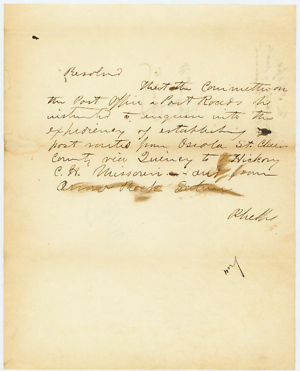 Resolved
That the Committee on
the Post Office & Post Roads be
instructed to enquire into the
expediency of establishing
post routes from Osceola St. Clair
County via Quincy to Hickory
C. H. Missouri and from
Phelps